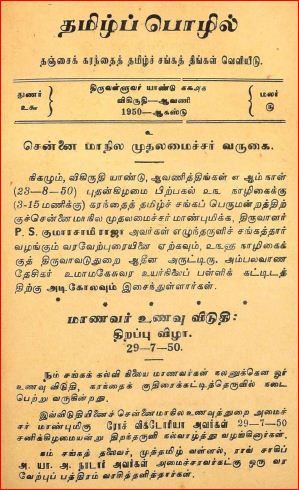 தமிழ்ப் பொழில்
தஞ்சைக் கரந்தைத் தமிழ்ச் சங்கத் திங்கள் வெளியீடு.
துணர் உ௬
திருவள்ளுவர் யாண்டு
விகிருதி—ஆவணி
1950—ஆகஸ்டு
மலர்
உ
சென்னை மாநில முதலமைச்சர் வருகை.
நிகழும், விகிருதி யாண்டு, ஆவணித்திங்கள் எ ஆம் நாள்
(23-8-50) புதன்கிழமை பிற்பகல் நாழிகைக்கு
(3-15 மணிக்கு) கரந்தைத் தமிழ்ச் சங்கப் பெருமன்றத்திற்
குச்சென்னை மாநில முதலமைச்சர் மாண்புமிக்க, திருவாளர்
P. S. குமாரசாமி ராஜா அவர்கள் எழுந்தருளிச் சங்கத்தார்
வழங்கும் வரவேற்புரையினை ஏற்கவும், நாழிகைக்
குத் திருவாவடுதுறை ஆதீன அருட்டிரு. அம்பலவாண
தேசிகர் உமாமகேசுவர உயர்நிலைப் பள்ளிக் கட்டிடத்
திற்கு அடிகோலவும் இசைந்துள்ளார்கள்.
மாணவர் உணவு விடுதி:
திறப்பு விழா.
29-7-50.
நம் சங்கக் கல்வி நிலைய மாணவர்கள் நலனுக்கென ஓர்
உணவு விடுதி, கரந்தைக் குதிரைகட்டித்தெருவில் நடை
பெற்று வருகின்றது.
இவ்விடுதியினைச் சென்னை மாநில உணவுத்துறை அமைச்
சர் மாண்புமிகு ரோச் விக்டோரியா அவர்கள் 29—7—50
சனிக்கிழமையன்று திறந்தருளி நல்வாழ்த்து வழங்கினார்கள்.
நம் சங்கத் தலைவர், முத்தமிழ் வள்ளல், ராவ் சாகிப்
அ. யா. அ. நாடார் அவர்கள் அமைச்சரவர்கட்கு ஒரு வர
வேற்புப் பத்திரம் வாசித்தளித்தார்கள்.